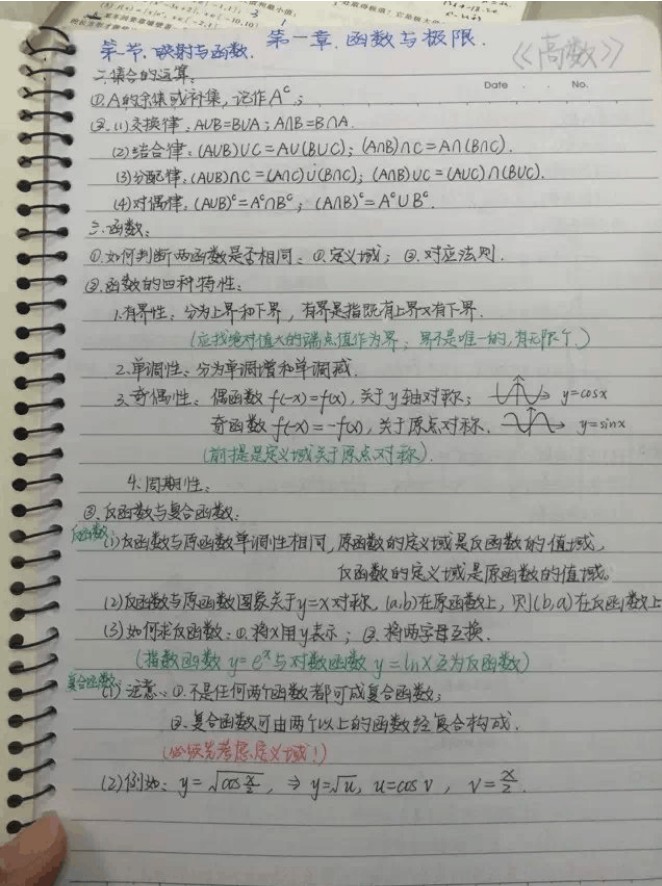 第一章.函数与极限.
《高数》
第一节.映射与函数.
Date . . No.
二.集合的运算:
①.A的余集或补集,记作Aᶜ;
②.(1)交换律:A∪B=B∪A;A∩B=B∩A.
(2)结合律:(A∪B)∪C=A∪(B∪C);(A∩B)∩C=A∩(B∩C).
(3)分配律:(A∪B)∩C=(A∩C)∪(B∩C);(A∩B)∪C=(A∪C)∩(B∪C).
(4)对偶律:(A∪B)ᶜ=Aᶜ∩Bᶜ;(A∩B)ᶜ=Aᶜ∪Bᶜ.
三.函数:
①.如何判断两函数是否相同:①.定义域;②.对应法则.
②.函数的四种特性:
1.有界性:分为上界和下界,有界是指既有上界又有下界.
(应找绝对值大的端点值作为界;界不是唯一的,有无限个.)
2.单调性:分为单调增和单调减.
3.奇偶性:偶函数f(-x)=f(x),关于y轴对称; y=cosx
奇函数f(-x)=-f(x),关于原点对称. y=sinx
(前提是定义域关于原点对称).
4.周期性:
③.反函数与复合函数:
反函数:(1)反函数与原函数单调性相同,原函数的定义域是反函数的值域,
反函数的定义域是原函数的值域。
(2)反函数与原函数图象关于y=x对称,(a,b)在原函数上,则(b,a)在反函数上
(3)如何求反函数:①.将x用y表示;②.将两字母互换.
(指数函数y=eˣ与对数函数y=lnx互为反函数)
复合函数:(1)注意:①.不是任何两个函数都可成复合函数;
②.复合函数可由两个以上的函数经复合构成.
(必须先考虑定义域!)
(2)例如:y=√(cos x/2),⇒y=√u,u=cosv,v=x/2.